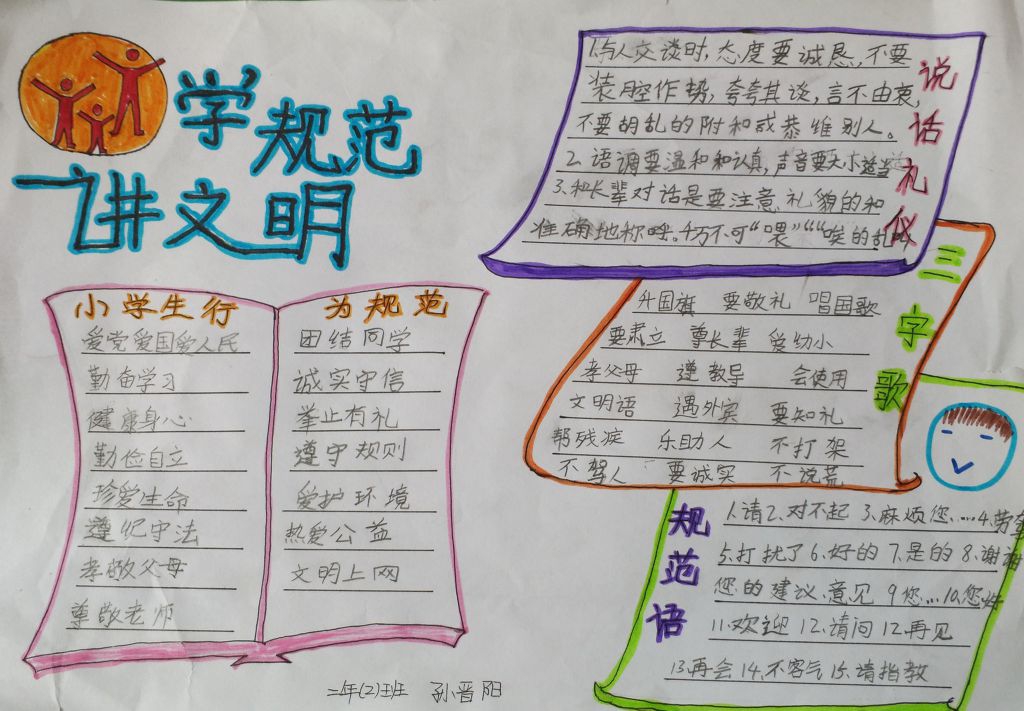 学规范
讲文明
小学生行为规范
爱党爱国爱人民
勤奋学习
健康身心
勤俭自立
珍爱生命
遵纪守法
孝敬父母
尊敬老师
团结同学
诚实守信
举止有礼
遵守规则
爱护环境
热爱公益
文明上网
说话礼仪
1.与人交谈时,态度要诚恳,不要
装腔作势,夸夸其谈,言不由衷,
不要胡乱的附和或恭维别人。
2.语调要温和和认真,声音要大小适当
3.和长辈对话是要注意礼貌的和
准确地称呼。千万不可“喂”““唉的乱叫
三字歌
升国旗 要敬礼 唱国歌
要肃立 尊长辈 爱幼小
孝父母 遵教导 会使用
文明语 遇外宾 要知礼
帮残疾 乐助人 不打架
不骂人 要诚实 不说荒
规范语
1.请2.对不起 3.麻烦您....4.劳驾
5.打扰了6.好的7.是的8.谢谢
您的建议.意见 9您...10.您好
11.欢迎 12.请问 12.再见
13.再会14.不客气15.请指教
二年(2)班 孙晋阳